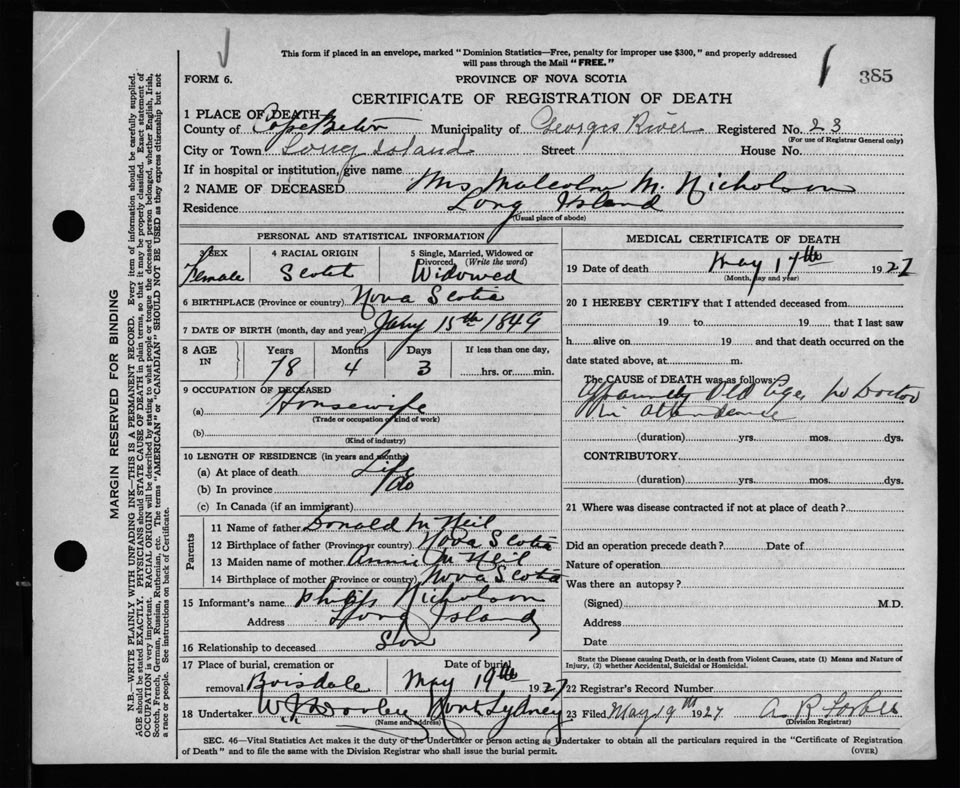 This form if placed in an envelope, marked "Dominion Statistics—Free, penalty for improper use $300," and properly addressed
will pass through the Mail "FREE."
385
FORM 6.
PROVINCE OF NOVA SCOTIA
CERTIFICATE OF REGISTRATION OF DEATH
1 PLACE OF DEATH
County of Cape Breton Municipality of Georges River Registered No. 23
(For use of Registrar General only)
City or Town Long Island Street House No.
If in hospital or institution, give name
2 NAME OF DECEASED Mrs Malcolm M. Nicholson
Residence Long Island
(Usual place of abode)
PERSONAL AND STATISTICAL INFORMATION
3 SEX 4 RACIAL ORIGIN 5 Single, Married, Widowed or
Divorced, (Write the word)
Female Scotch Widowed
6 BIRTHPLACE (Province or country) Nova Scotia
7 DATE OF BIRTH (month, day and year) Jany 15th 1849
8 AGE IN Years Months Days If less than one day,
78 4 3 hrs. or min.
9 OCCUPATION OF DECEASED
(a) Housewife
(Trade or occupation or kind of work)
(b)
(Kind of industry)
10 LENGTH OF RESIDENCE (in years and months)
(a) At place of death Life
(b) In province do
(c) In Canada (if an immigrant)
Parents
11 Name of father Donald McNeil
12 Birthplace of father (Province or country) Nova Scotia
13 Maiden name of mother Annie McNeil
14 Birthplace of mother (Province or country) Nova Scotia
15 Informant's name Nicholson
Address Long Island
16 Relationship to deceased Son
17 Place of burial, cremation or Date of burial
removal Boisdale May 19th 1927
18 Undertaker North Sydney
(Name and address)
MEDICAL CERTIFICATE OF DEATH
19 Date of death May 17th 1927
(Month, day and year)
20 I HEREBY CERTIFY that I attended deceased from
19 to 19 that I last saw
h alive on 19 and that death occurred on the
date stated above, at m.
The CAUSE of DEATH was as follows:
Old Age, No Doctor
in attendence
(duration) yrs. mos. dys.
CONTRIBUTORY
(duration) yrs. mos. dys.
21 Where was disease contracted if not at place of death?
Did an operation precede death? Date of
Nature of operation
Was there an autopsy?
(Signed) M.D.
Address
Date
State the Disease causing Death, or in death from Violent Causes, state (1) Means and Nature of
Injury, (2) whether Accidental, Suicidal or Homicidal.
22 Registrar's Record Number
23 Filed May 19th 1927 A. R.
(Division Registrar)
SEC. 46—Vital Statistics Act makes it the duty of the Undertaker or person acting as Undertaker to obtain all the particulars required in the "Certificate of Registration
of Death" and to file the same with the Division Registrar who shall issue the burial permit. (OVER)
MARGIN RESERVED FOR BINDING
N.B.—WRITE PLAINLY WITH UNFADING INK—THIS IS A PERMANENT RECORD. Every item of information should be carefully supplied.
AGE should be stated EXACTLY. PHYSICIANS should STATE CAUSE OF DEATH in plain terms, so that it may be properly classified. Exact statement of
OCCUPATION is very important. RACIAL ORIGIN will be described by stating to what people or tongue the deceased person belonged, whether English, Irish,
Scotch, French, German, Russian, Ruthenian, etc. The terms "AMERICAN" or "CANADIAN" SHOULD NOT BE USED as they express citizenship but not
a race or people. See instructions on back of Certificate.